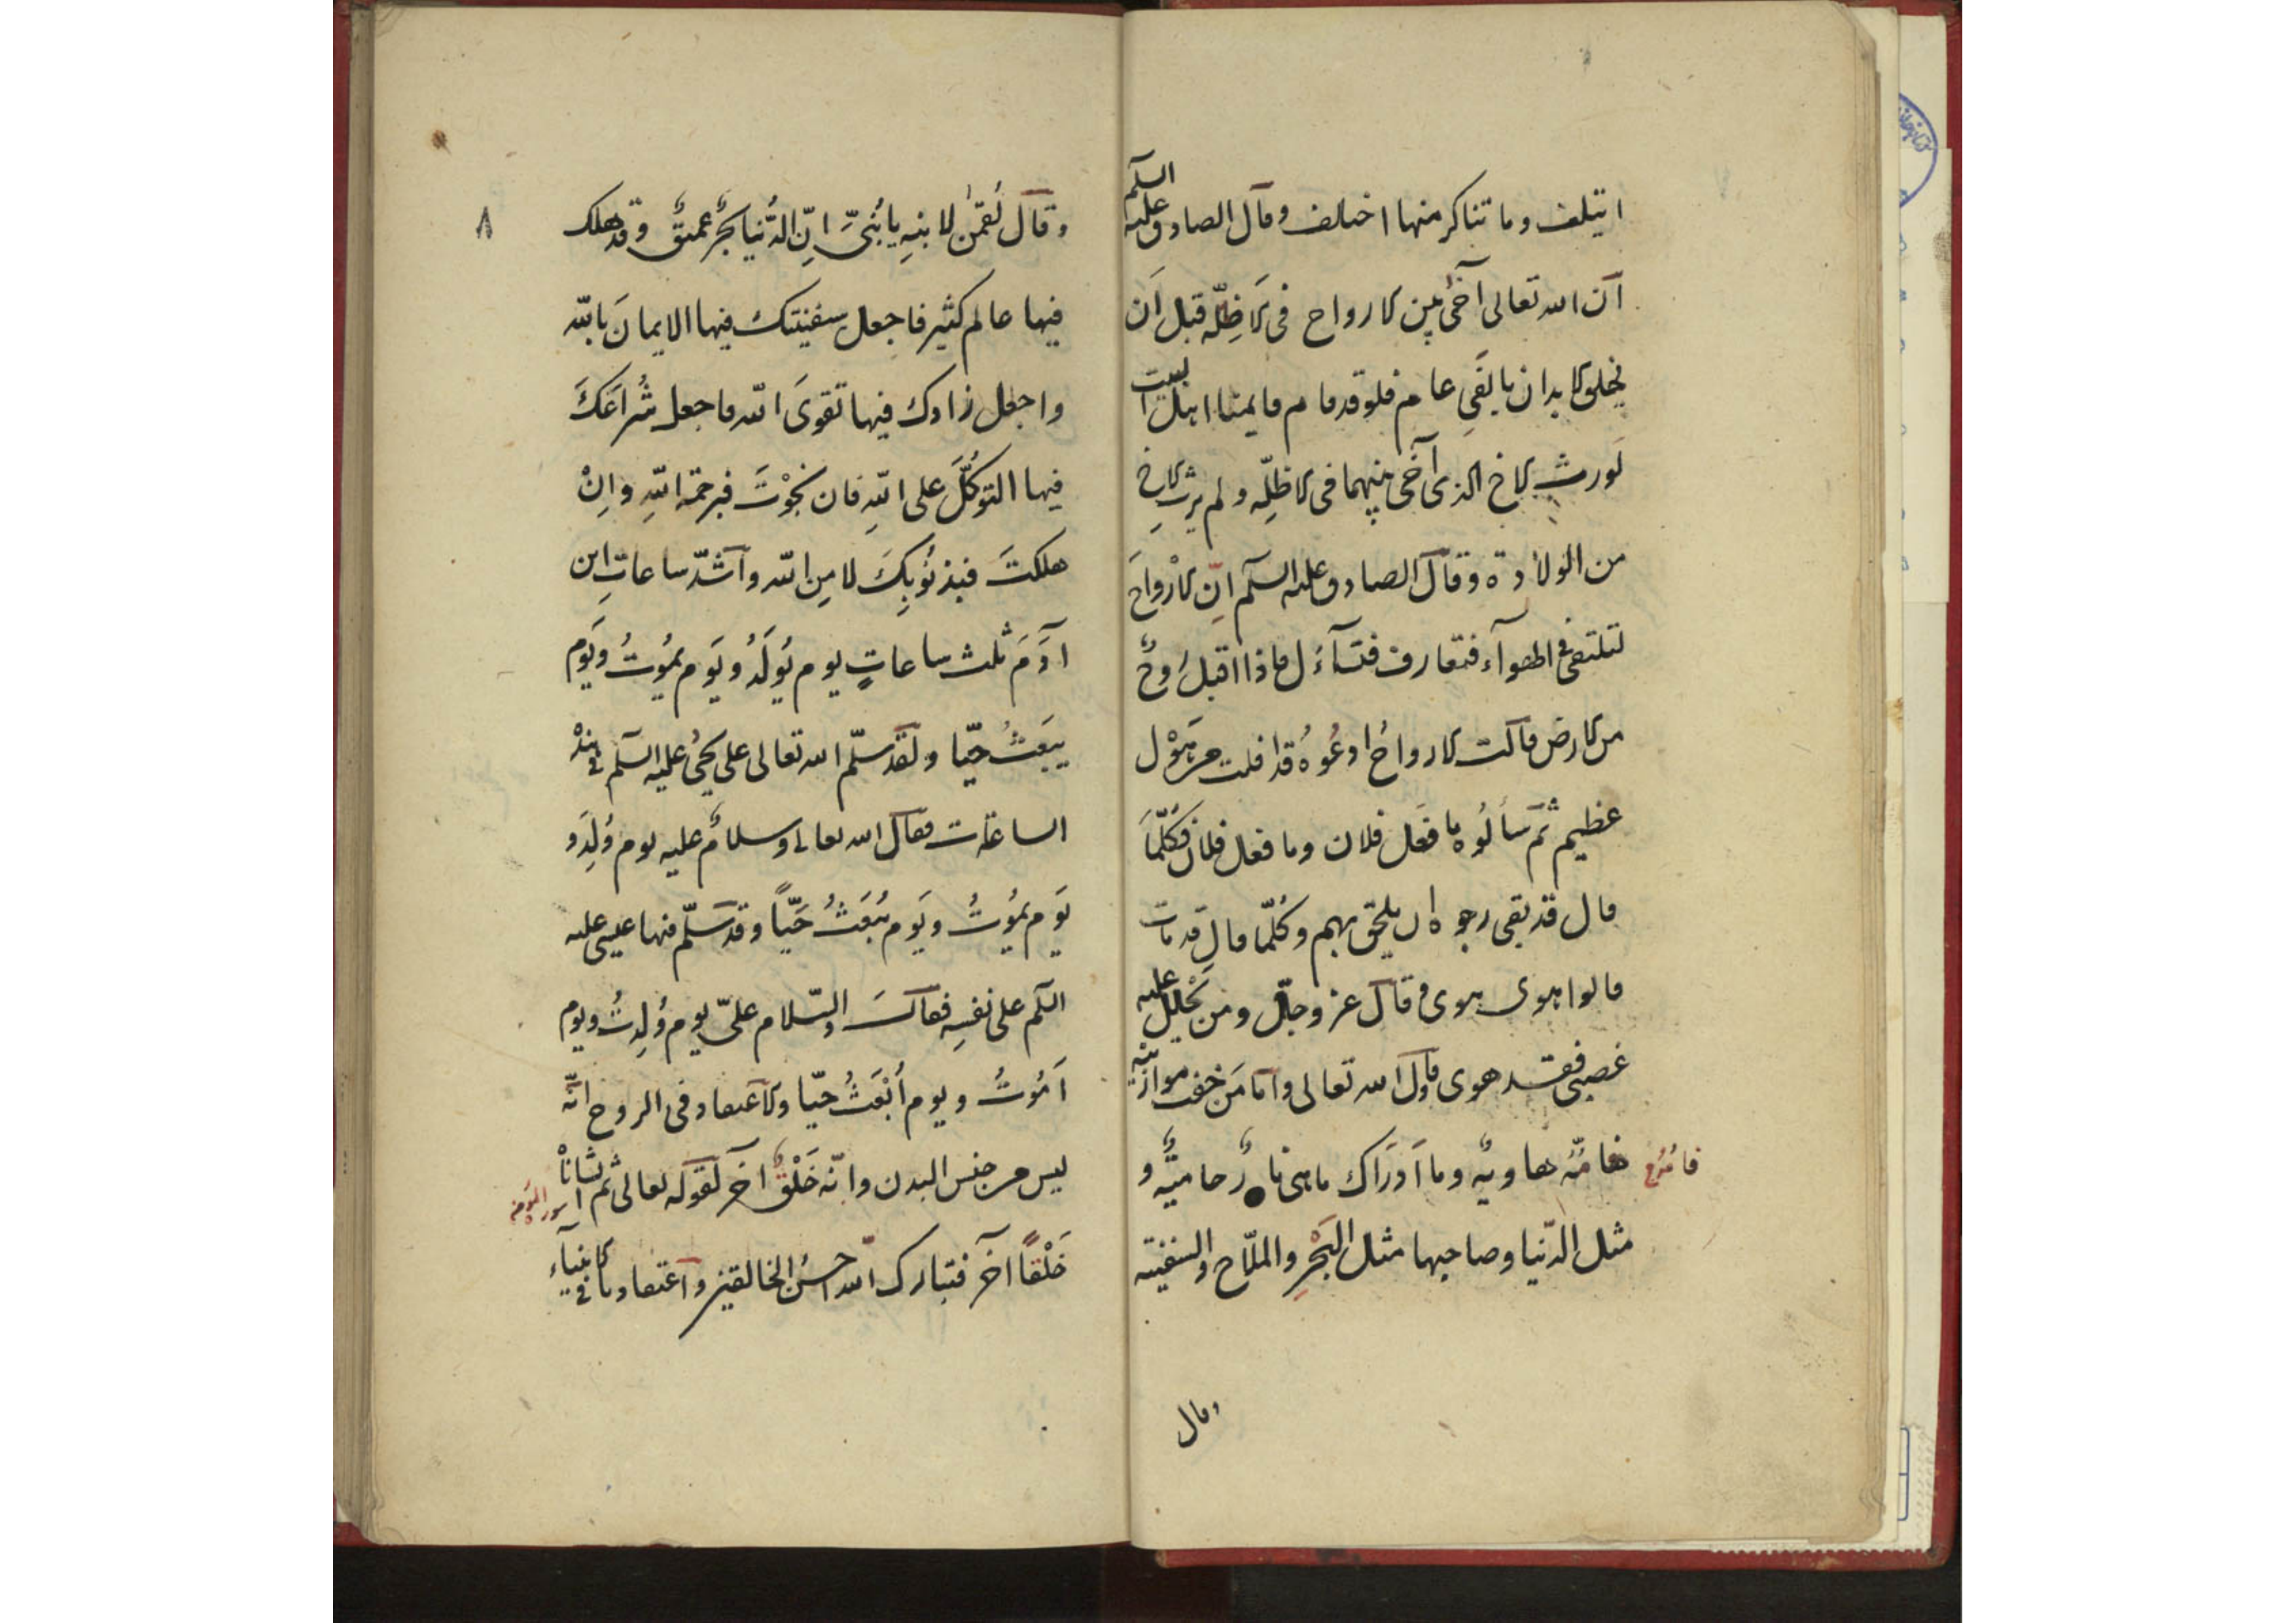 ايتلف وما تناكر منها اختلف وقال الصادق عليه السلم
ان الله تعالى آخى بين الارواح في الاظلّه قبل أن
يخلق الابدان بالفي عام فلو قد قام قايمنا اهل البيت
لورث الاخ الذى آخى بينهما في الاظلّه ولم يرث الاخ
من الولادة وقال الصادق عليه السلم انّ الارواحَ
لتلتقى في الهوآء فتعارف فتسآءل فاذا اقبل رُوحٌ
من الارض قالت الارواحُ ادعُوهُ قد افلت من هَوْل
عظيم ثم سألُوه ما فعَل فلان وما فعل فلان فكلّما
قال قد بقى رجوه ان يلحق بهم وكُلّما قال قد مات
قالوا هوى هوى وقال عز وجلّ ومن يَحْلِل عليه
غضبى فقد هوى وقال الله تعالى وامّا مَن خفت موازينه
فامّهُ هاويةٌ وما اَدرَاك ماهى نارٌ حاميةٌ و
مثل الدّنيا وصاحبها مثل البَحْرِ والملّاح والسفينة
وقال
٨
وقال لُقمٰن لابنِهِ يا بُنَىَّ انّ الدُّنيا بحرٌ عميقٌ وقد هلك
فيها عالم كثير فاجعل سفينتك فيها الايمانَ بالله
واجعل زادك فيها تقوىَ الله واجعل شُرَاعَكَ
فيها التوكُّلَ على اللهِ فان نجوْتَ فبرحمة اللهِ وانْ
هلكتَ فبذنُوبِكَ لا مِن الله واشدّ ساعاتِ ابن
آدَمَ ثلث ساعاتٍ يوم يُولَدُ ويَوم يمُوتُ ويَوم
يبعَثُ حيّا ولقد سلّم الله تعالى على يحيٰى عليه السلم في هذه
الساعات فقال الله تعالى وسلامٌ عليه يوم وُلِدَ و
يَوم يمُوتُ ويَوم يُبعَثُ حَيّاً وقد سَلّم فيها عيسى عليه
السلم على نفسِه فقالَ والسّلام علىّ يوم وُلِدتُ ويوم
اَمُوتُ ويوم أُبْعَثُ حيّا والاعتقاد فى الروح انّه
ليس من جنس البدن وانّه خَلْقٌ آخر لقوله تعالى ثم انشأناْه
خَلْقاً آخر فتبارك الله احسنُ الخالقين واعتقادنا في الانبيآء